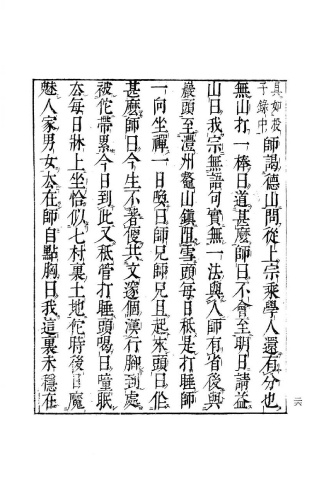 具如投子錄中師謁德山問從上宗乗學人還有分也
無山打一棒曰道甚麽師曰不會至明日請益
山曰我宗無語句實無一法與人師有省後與
巖頭至澧州鰲山鎮阻雪頭每日秪是打睡師
一向坐禪一日喚曰師兄師兄且起來頭曰作
甚麽師曰今生不著便共文邃個漢行脚到處
被佗帶累今日到此又秪管打睡頭喝曰噇眠
去每日牀上坐恰似七村裏土地佗時後日魔
魅人家男女去在師自點胸曰我這裏未穩在